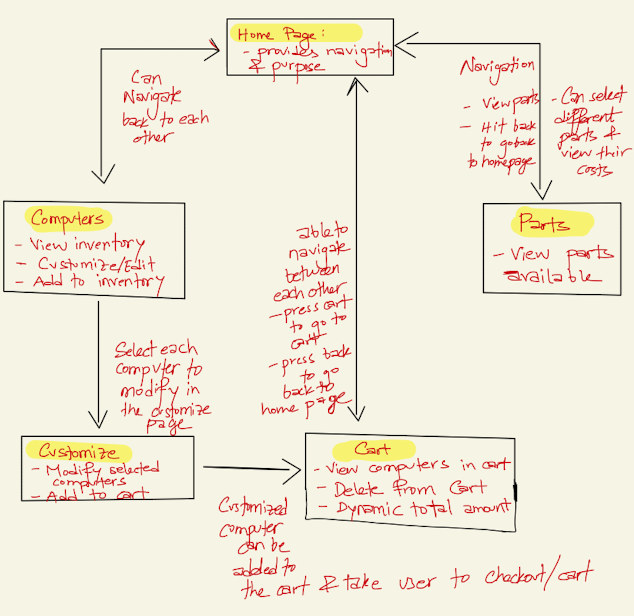 Home Page:
- provides navigation
& purpose
Can
Navigate
back to each
other
Navigation
- View parts
- Hit back
to go back
to homepage
- Can select
different
parts &
view their
costs
Computers
- View inventory
- Customize/Edit
- Add to inventory
Parts
- View parts
available
able to
navigate
between
each other
- press cart
to go to
cart
- press back
to go
back to
home page
Select each
computer to
modify in
the customize
page
Customize
- Modify selected
computers
- Add to cart
Cart
- View computers in cart
- Delete from Cart
- Dynamic total amount
Customized
computer
can be
added to
the cart & take user to checkout/cart